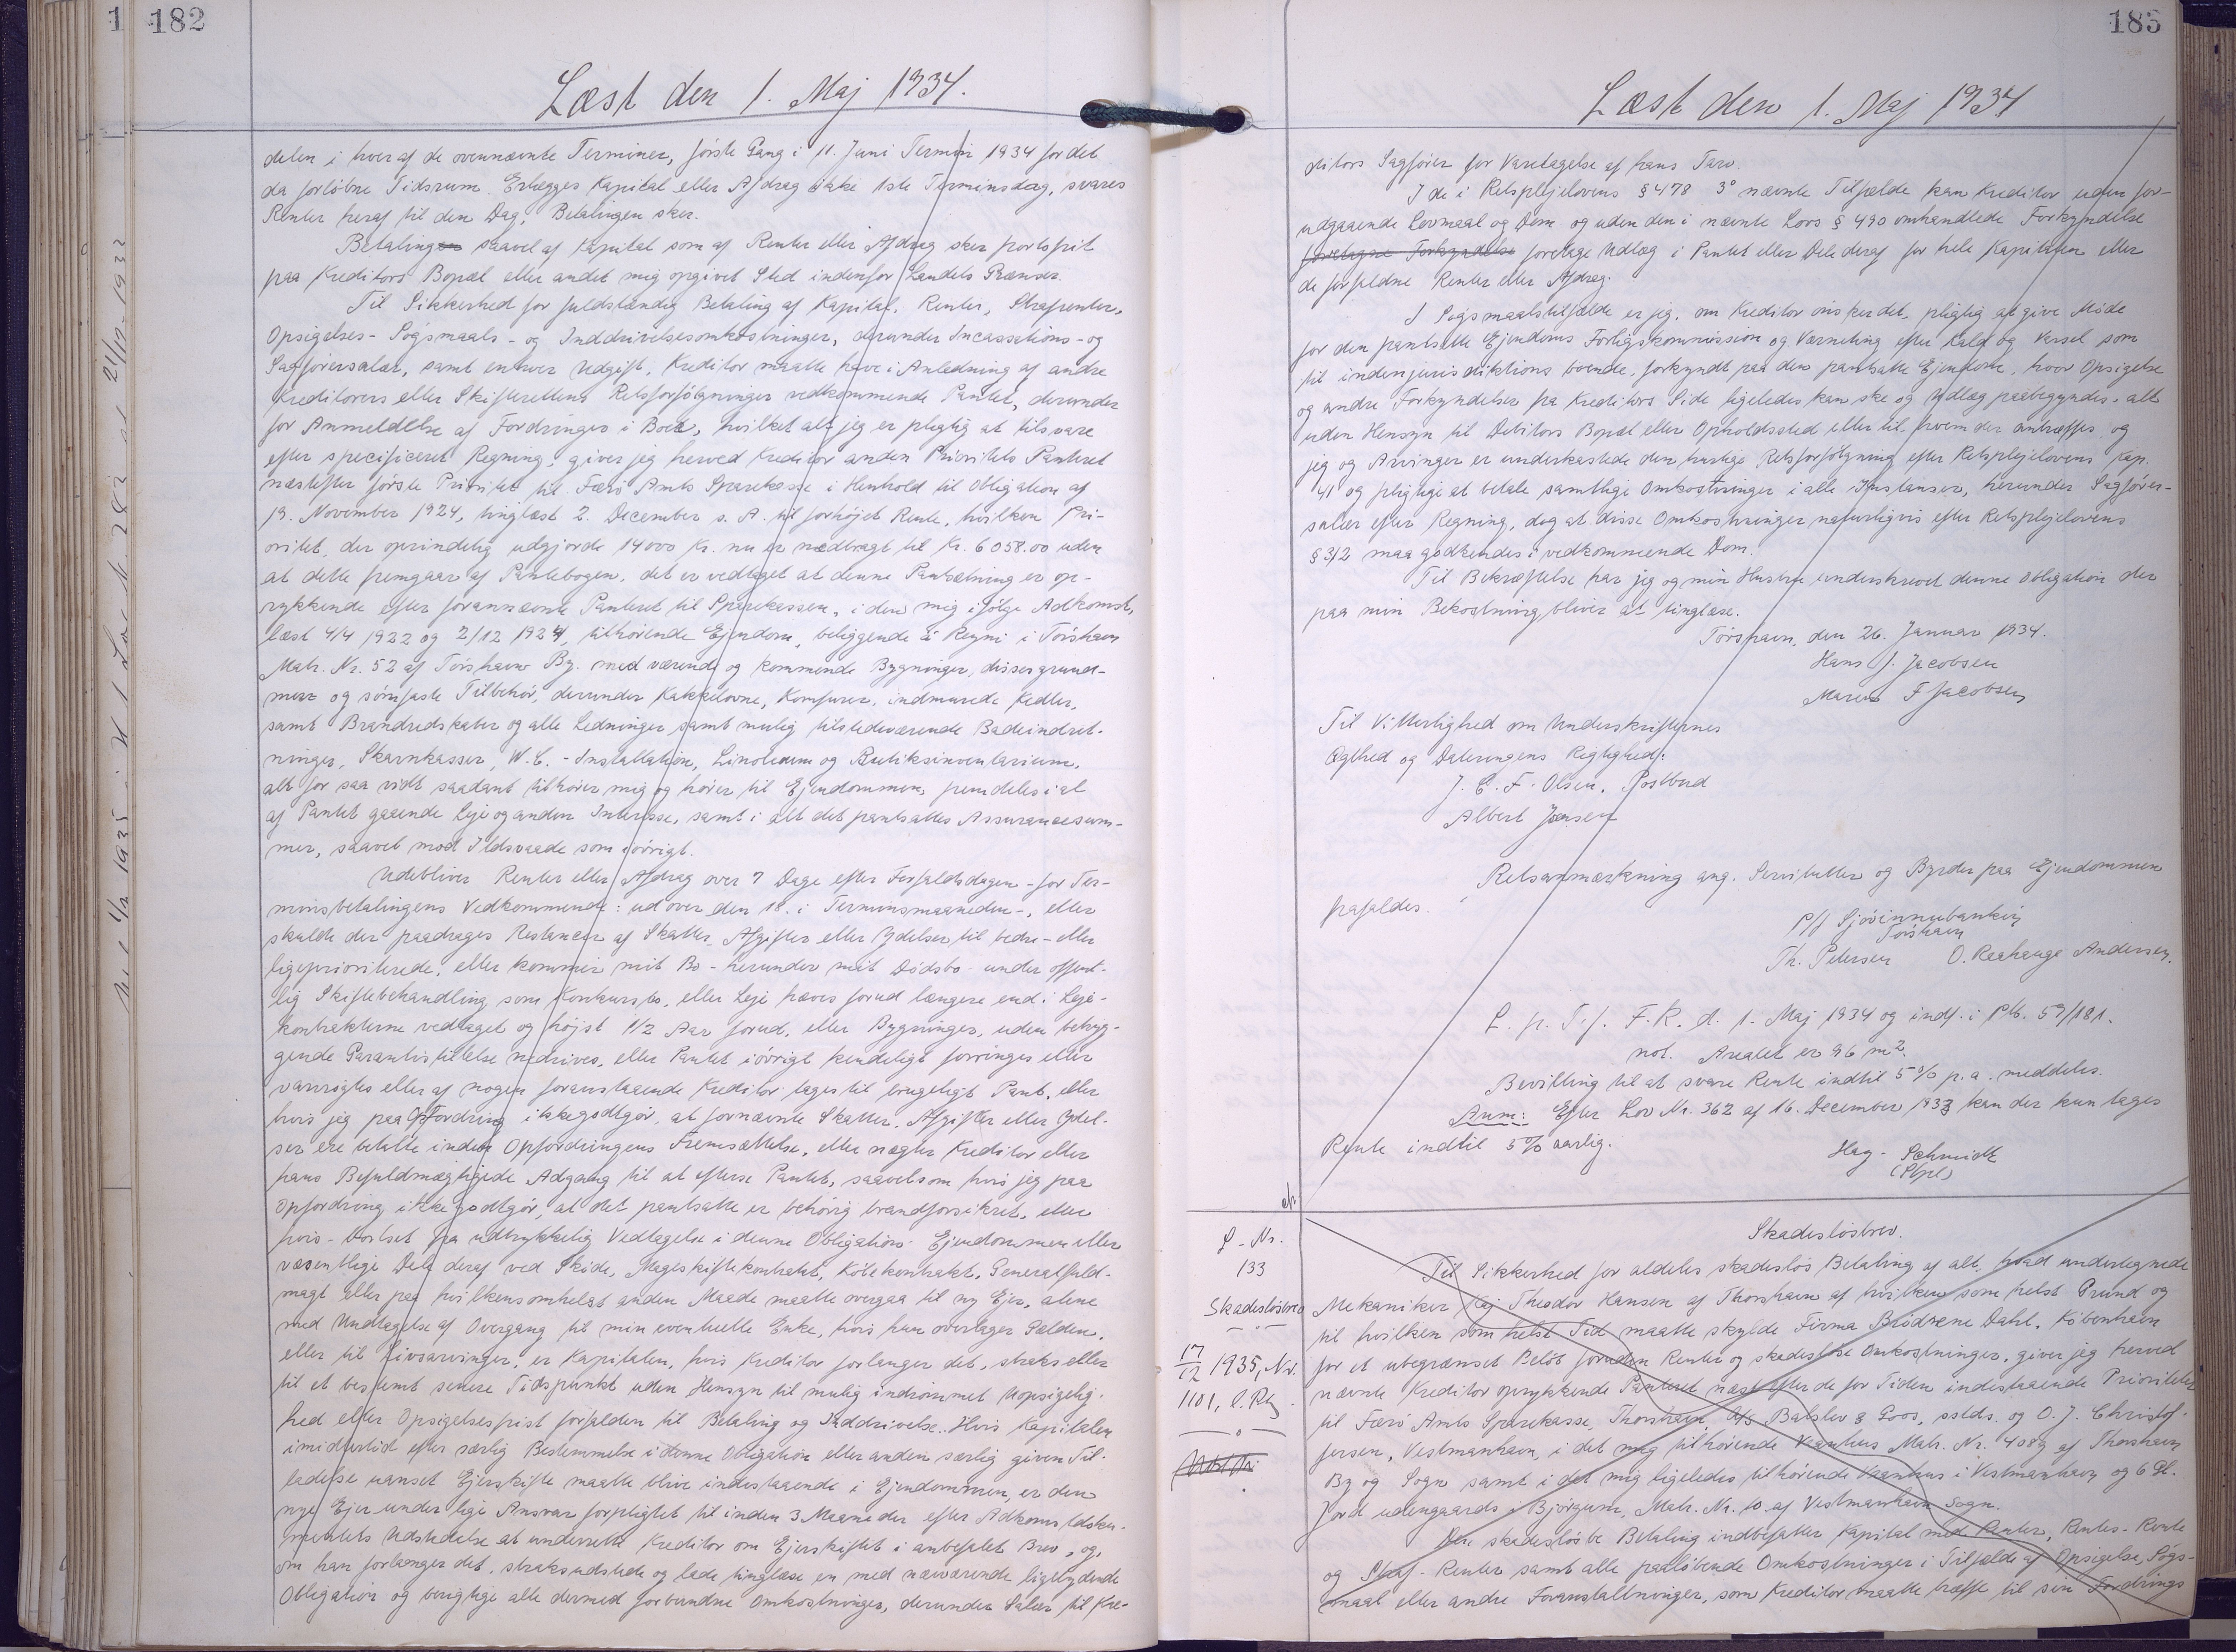 182
Læst den 1. Maj 1934.
delen i hver af de ovennævnte Terminer, første Gang i 11. Juni Termin 1934 for det
da forløbne Tidsrum. Erlægges Kapital eller Afdrag ikke 1ste Terminsdag, svares
Renter heraf til den Dag, Betalingen sker.
Betaling saavel af Kapital som af Renter eller Afdrag sker portofrit
paa Kreditors Bopæl eller andet mig opgivet Sted indenfor Landets Grænser.
Til Sikkerhed for fuldstændig Betaling af Kapital, Renter, Strafrenter,
Opsigelses- Søgsmaals- og Inddrivelsesomkostninger, derunder Incassations- og
Sagførersalær, samt enhver Udgift, Kreditor maatte have i Anledning af andre
Kreditorers eller Skifterettens Retsforfølgninger vedkommende Pantet, derunder
for Anmeldelse af Fordringer i Boer, hvilket alt jeg er pligtig at tilsvare
efter specificeret Regning, giver jeg herved Kreditor anden Prioritets Panteret
næstefter første Prioritet til Færø Amts Sparekasse i Henhold til Obligation af
19. November 1924, tinglæst 2. December s. A. til forhøjet Rente, hvilken Pri-
oritet, der oprindelig udgjorde 14000 Kr. nu er nedbragt til Kr. 6058.00 uden
at dette fremgaar af Pantebogen, det er vedtaget at denne Pantsætning er op-
rykkende efter forannævnte Panteret til Sparekassen, i den mig ifølge Adkomst,
læst 4/4 1922 og 2/12 1924, tilhørende Ejendom, beliggende á Reyni i Tórshavn
Matr. Nr. 52 af Tórshavns By. med værende og kommende Bygninger, disses grund-
mur og sømfaste Tilbehør, derunder Kakkelovne, Komfurer, indmurede Kedler,
samt Brandredskaber og alle Ledninger, samt mulig tilstedeværende Badeindret-
ninger, Skarnkasser, W.C.-Installation, Linoleum og Butiksinventarium,
alt for saa vidt saadant tilhører mig og hører til Ejendommen, fremdeles i al
af Pantet gaaende Leje og anden Interesse, samt i alt det pantsattes Assurancesum-
mer, saavel mod Ildsvaade som iøvrigt.
Udebliver Renter eller Afdrag over 7 Dage efter Forfaldsdagen - for Ter-
minsbetalingens Vedkommende: ud over den 18. i Terminsmaaneden -, eller
skulde der paadrages Restancer af Skatter, Afgifter eller Ydelser til bedre- eller
ligeprioriterede, eller kommer mit Bo - herunder mit Dødsbo - under offent-
lig Skiftebehandling som Konkursbo, eller Leje hæves forud længere end i Leje-
kontrakterne vedtaget og højst 1/2 Aar forud, eller Bygninger, uden betryg-
gende Garantistillelse nedrives, eller Pantet iøvrigt kendeligt forringes eller
vanrøgtes eller af nogen foranstaaende Kreditor tages til brugeligt Pant, eller
hvis jeg paa Opfordring ikke godtgør, at fornævnte Skatter, Afgifter eller Ydel-
ser ere betalte inden Opfordringens Fremsættelse, eller nægter Kreditor eller
hans Befuldmægtigede Adgang til at efterse Pantet, saavelsom hvis jeg paa
Opfordring ikke godtgør, at det pantsatte er behørig brandforsikret, eller
hvis - bortset fra udtrykkelig Vedtagelse i denne Obligation - Ejendommen eller
væsentlige Dele deraf ved Skøde, Mageskiftekontrakt, Købekontrakt, Generalfuld-
magt eller paa hvilkensomhelst anden Maade maatte overgaa til ny Ejer, alene
med Undtagelse af Overgang til min eventuelle Enke, hvis hun overtager Gælden,
eller til Livsarvinger, er Kapitalen, hvis Kreditor forlanger det, straks eller
til et bestemt senere Tidspunkt uden Hensyn til mulig indrømmet Uopsigelig-
hed eller Opsigelsesfrist forfalden til Betaling og Inddrivelse. Hvis Kapitalen
imidlertid efter særlig Bestemmelse i denne Obligation eller anden særlig given Til-
ladelse uanset Ejerskifte maatte blive indestaaende i Ejendommen, er den
nye Ejer under lige Ansvar forpligtet til inden 3 Maaneder efter Adkomstdoku-
mentets Udstedelse at underrette Kreditor om Ejerskiftet i anbefalet Brev, og,
om han forlanger det, straks udstede og lade tinglæse en med nærværende ligelydende
Obligation og berigtige alle dermed forbundne Omkostninger, derunder Salær til Kre-
183
Læst den 1. Maj 1934
ditors Sagfører for Varetagelse af hans Tarv.
I de i Retsplejelovens § 478 3° nævnte Tilfælde kan Kreditor uden for-
udgaaende Lovmaal og Dom og uden den i nævnte Lovs § 490 omhandlede Forkyndelse
foretagne Forkyndelse foretage Udlæg i Pantet eller Dele deraf for hele Kapitalen eller
de forfaldne Renter eller Afdrag.
I Søgsmaalstilfælde er jeg, om Kreditor ønsker det, pligtig at give Møde
for den pantsatte Ejendoms Forligskommission og Værneting efter Kald og Varsel som
til indenjurisdiktions boende, forkyndt paa den pantsatte Ejendom, hvor Opsigelse
og andre Forkyndelser fra Kreditors Side ligeledes kan ske og Udlæg paabegyndes, alt
uden Hensyn til Debitors Bopæl eller Opholdssted eller til, hvem der antræffes, og
jeg og Arvinger er underkastede den hurtige Retsforfølgning efter Retsplejelovens Kap.
41 og pligtige at betale samtlige Omkostninger i alle Instanser, herunder Sagfører-
salær efter Regning, dog at disse Omkostninger naturligvis efter Retsplejelovens
§ 312 maa godkendes i vedkommende Dom.
Til Bekræftelse har jeg og min Hustru underskrevet denne Obligation der
paa min Bekostning bliver at tinglæse.
Tórshavn, den 26. Januar 1934.
Hans J. Jacobsen
Maren F Jacobsen
Til Vitterlighed om Underskrifternes
Ægthed og Dateringens Rigtighed:
J. C. F. Olsen, Postbud
Albert Jensen
Retsanmærkning ang. Servitutter og Byrder paa Ejendommen
frafaldes.
p/f Sjóvinnubankin
Tórshavn
Th. Petersen O. Raahauge Andersen.
L. p. T. f. F. R. d. 1. Maj 1934 og indf. i Ptb. 59/181.
not. Arealet er 96 m².
Bevilling til at svare Rente indtil 5% p.a. meddeles.
Anm: Efter Lov Nr. 362 af 16. December 1933 kan der kun tages
Rente indtil 5% aarlig.
Hag- Schmidt
Skadesløsbrev.
L-Nr.
133
Skadesløsbrev
17/12 1935, Nr.
1101,
Til Sikkerhed for aldeles skadesløs Betaling af alt, hvad undertegnede
Mekaniker Kaj Theodor Hansen af Thorshavn af hvilken som helst Grund og
til hvilken som helst Tid maatte skylde Firma Brødrene Dahl, København
for et ubegrænset Beløb foruden Renter og skadesløse Omkostninger, giver jeg herved
nævnte Kreditor oprykkende Panteret næst efter de for Tiden indestaaende Prioriteter
til Færø Amts Sparekasse, Thorshavn, A/S Balslev & Goos, sstds. og O. J. Christof-
fersen, Vestmanhavn, i det mig tilhørende Vaanhus Matr. Nr. 408g af Thorshavn
By og Sogn samt i det mig ligeledes tilhørende Vaanhus i Vestmanhavn og 6 Gl.
Jord udengaards i Bjørgum, Matr. Nr. 10 af Vestmanhavn Sogn.
Den skadesløse Betaling indbefatter Kapital med Renter, Rentes-Rente
og Straf-Renter samt alle paaløbende Omkostninger i Tilfælde af Opsigelse, Søgs-
maal eller andre Foranstaltninger, som Kreditor maatte træffe til sin Fordrings